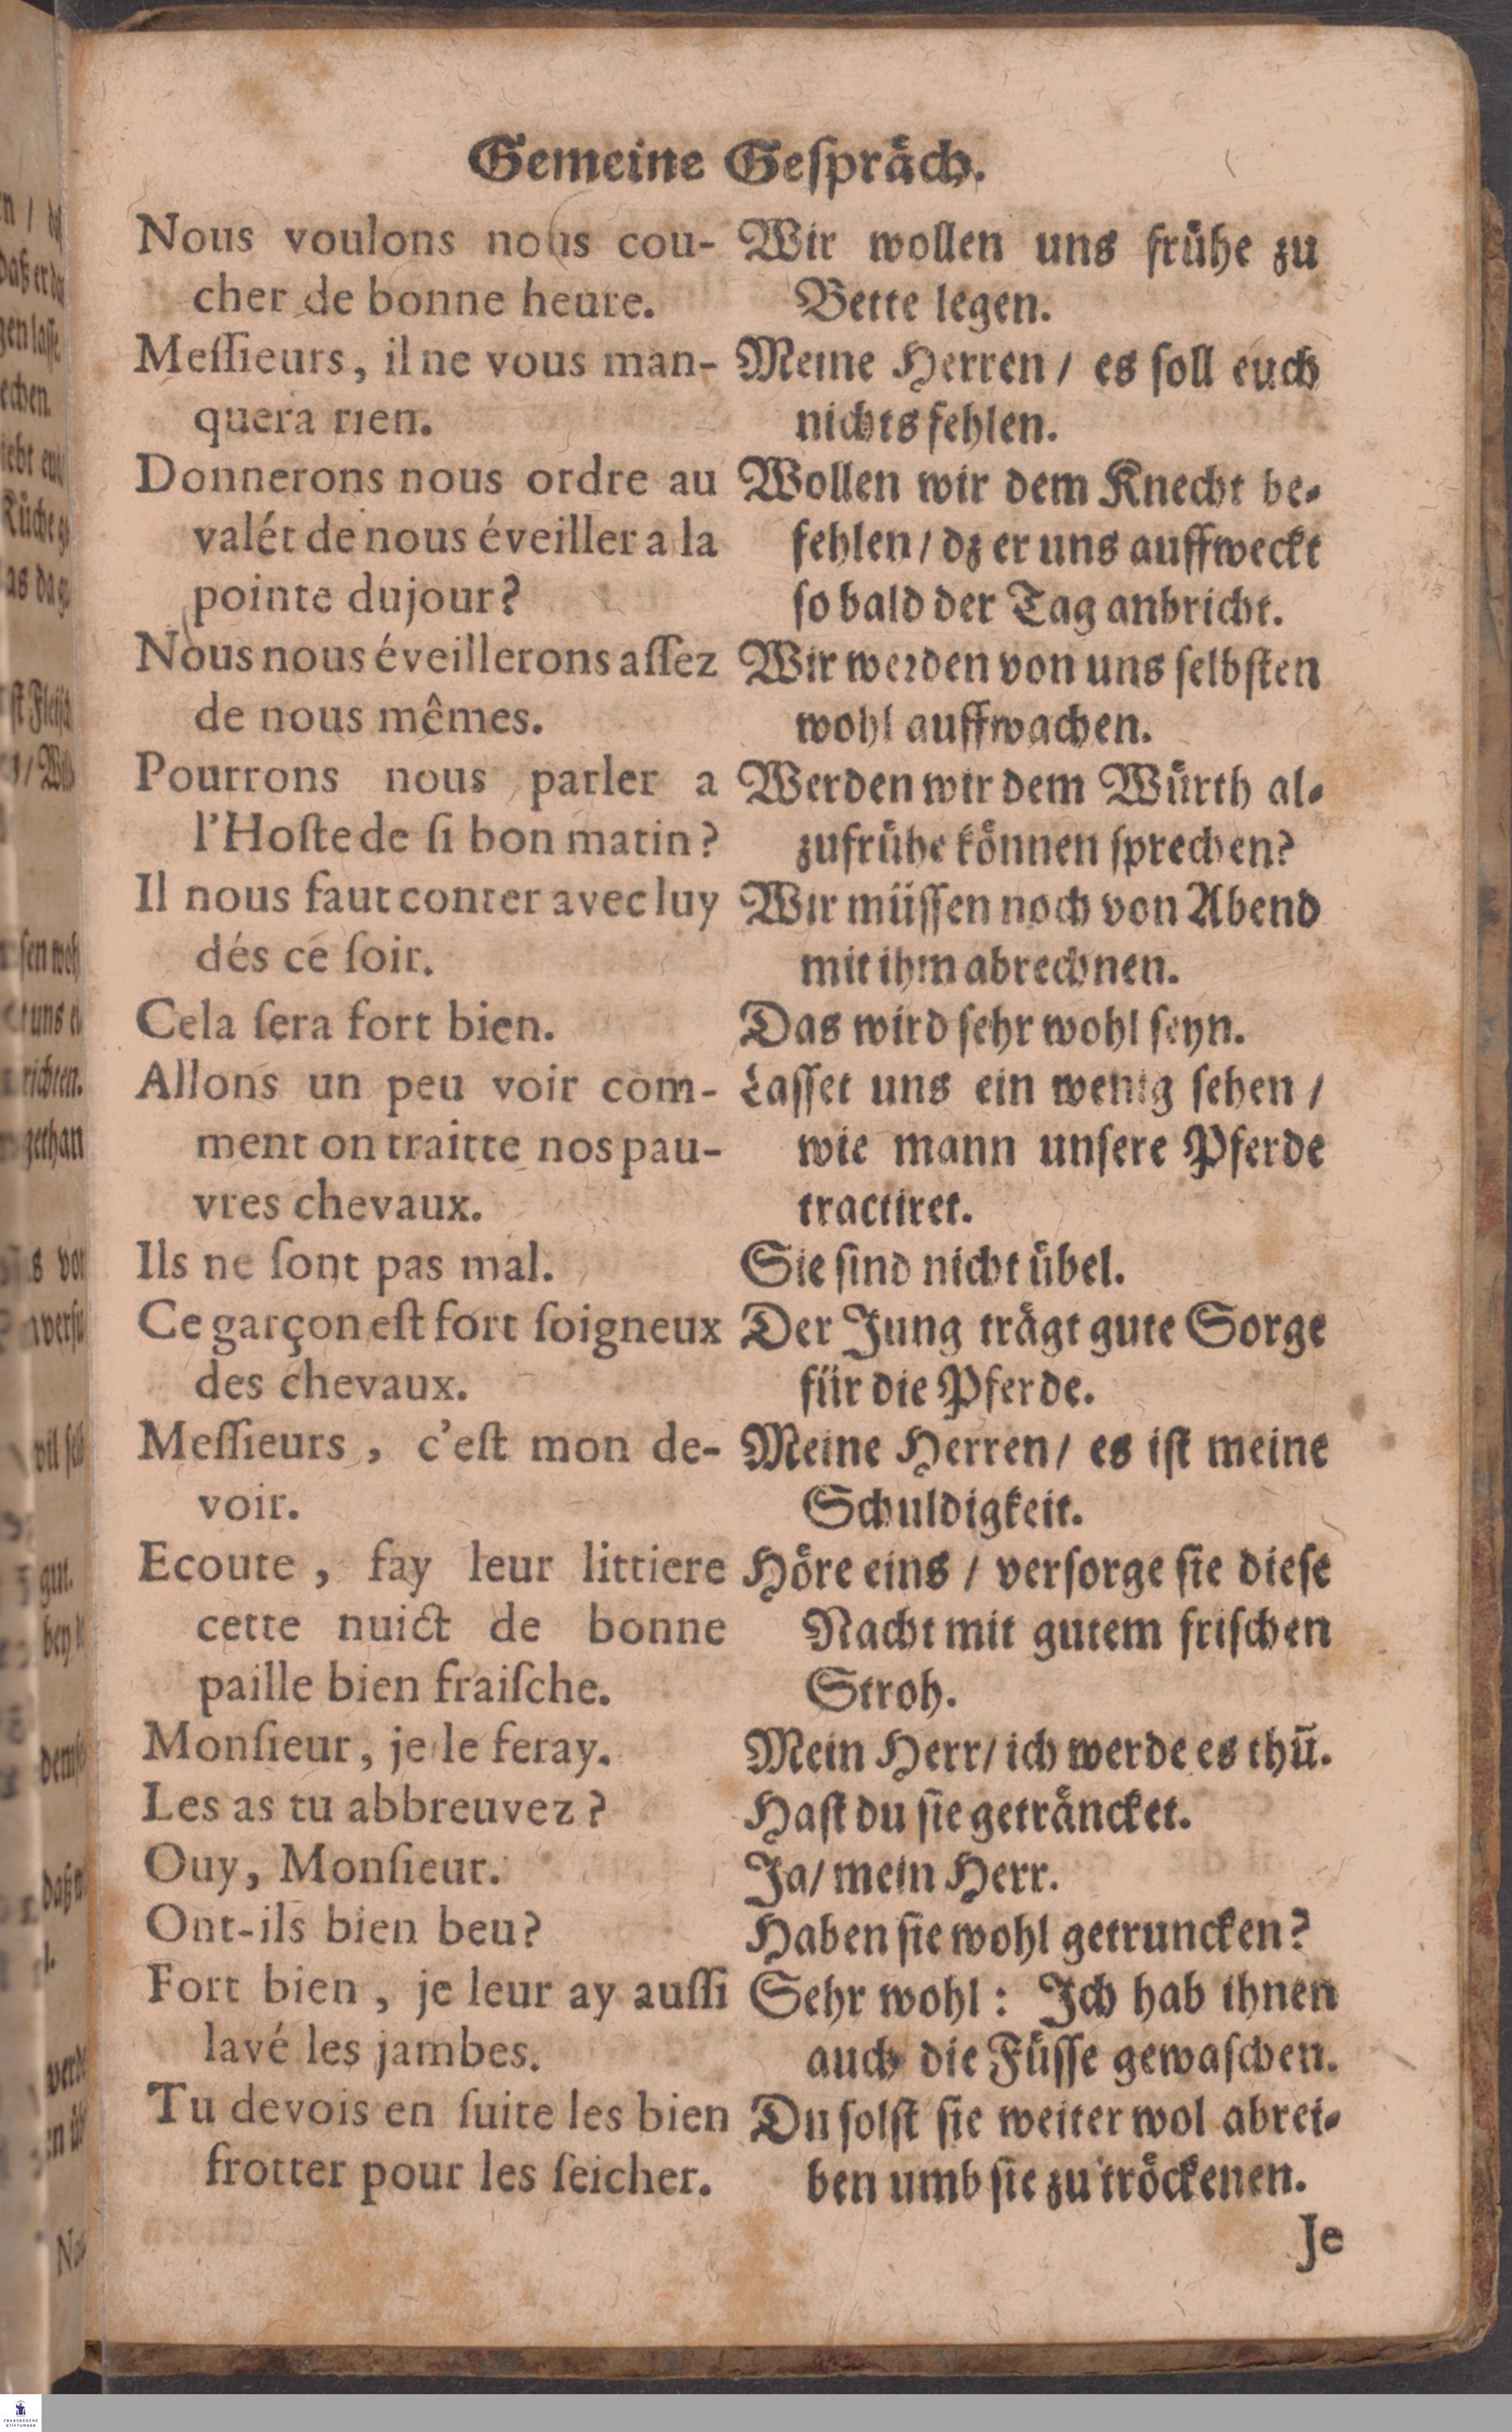 Gemeine Geſpräch.
Nous voulons nous cou-
cher de bonne heure.
Meſſieurs, il ne vous man-
quera rien.
Donnerons nous ordre au
valét de nous éveiller a la
pointe dujour?
Nous nous éveillerons aſſez
de nous mêmes.
Pourrons nous parler a
l'Hoſte de ſi bon matin?
Il nous faut conter avec luy
dés ce ſoir.
Cela ſera fort bien.
Allons un peu voir com-
ment on traitte nos pau-
vres chevaux.
Ils ne ſont pas mal.
Ce garçon eſt fort ſoigneux
des chevaux.
Meſſieurs, c'eſt mon de-
voir.
Ecoute, fay leur littiere
cette nuict de bonne
paille bien fraiſche.
Monſieur, je le feray.
Les as tu abbreuvez?
Ouy, Monſieur.
Ont-ils bien beu?
Fort bien, je leur ay auſſi
lavé les jambes.
Tu devois en ſuite les bien
frotter pour les ſeicher.
Wir wollen uns frühe zu
Bette legen.
Meine Herren / es ſoll euch
nichts fehlen.
Wollen wir dem Knecht be-
fehlen / dz er uns auffweckt
ſo bald der Tag anbricht.
Wir werden von uns ſelbſten
wohl auffwachen.
Werden wir dem Würth al-
zufrühe können ſprechen?
Wir müſſen noch von Abend
mit ihm abrechnen.
Das wird ſehr wohl ſeyn.
Laſſet uns ein wenig ſehen /
wie mann unſere Pferde
tractiret.
Sie ſind nicht übel.
Der Jung trägt gute Sorge
für die Pferde.
Meine Herren / es iſt meine
Schuldigkeit.
Höre eins / verſorge ſie dieſe
Nacht mit gutem friſchen
Stroh.
Mein Herr / ich werde es thū.
Haſt du ſie geträncket.
Ja / mein Herr.
Haben ſie wohl getruncken?
Sehr wohl: Ich hab ihnen
auch die Füſſe gewaſchen.
Du ſolſt ſie weiter wol abrei-
ben umb ſie zu tröckenen.
Je